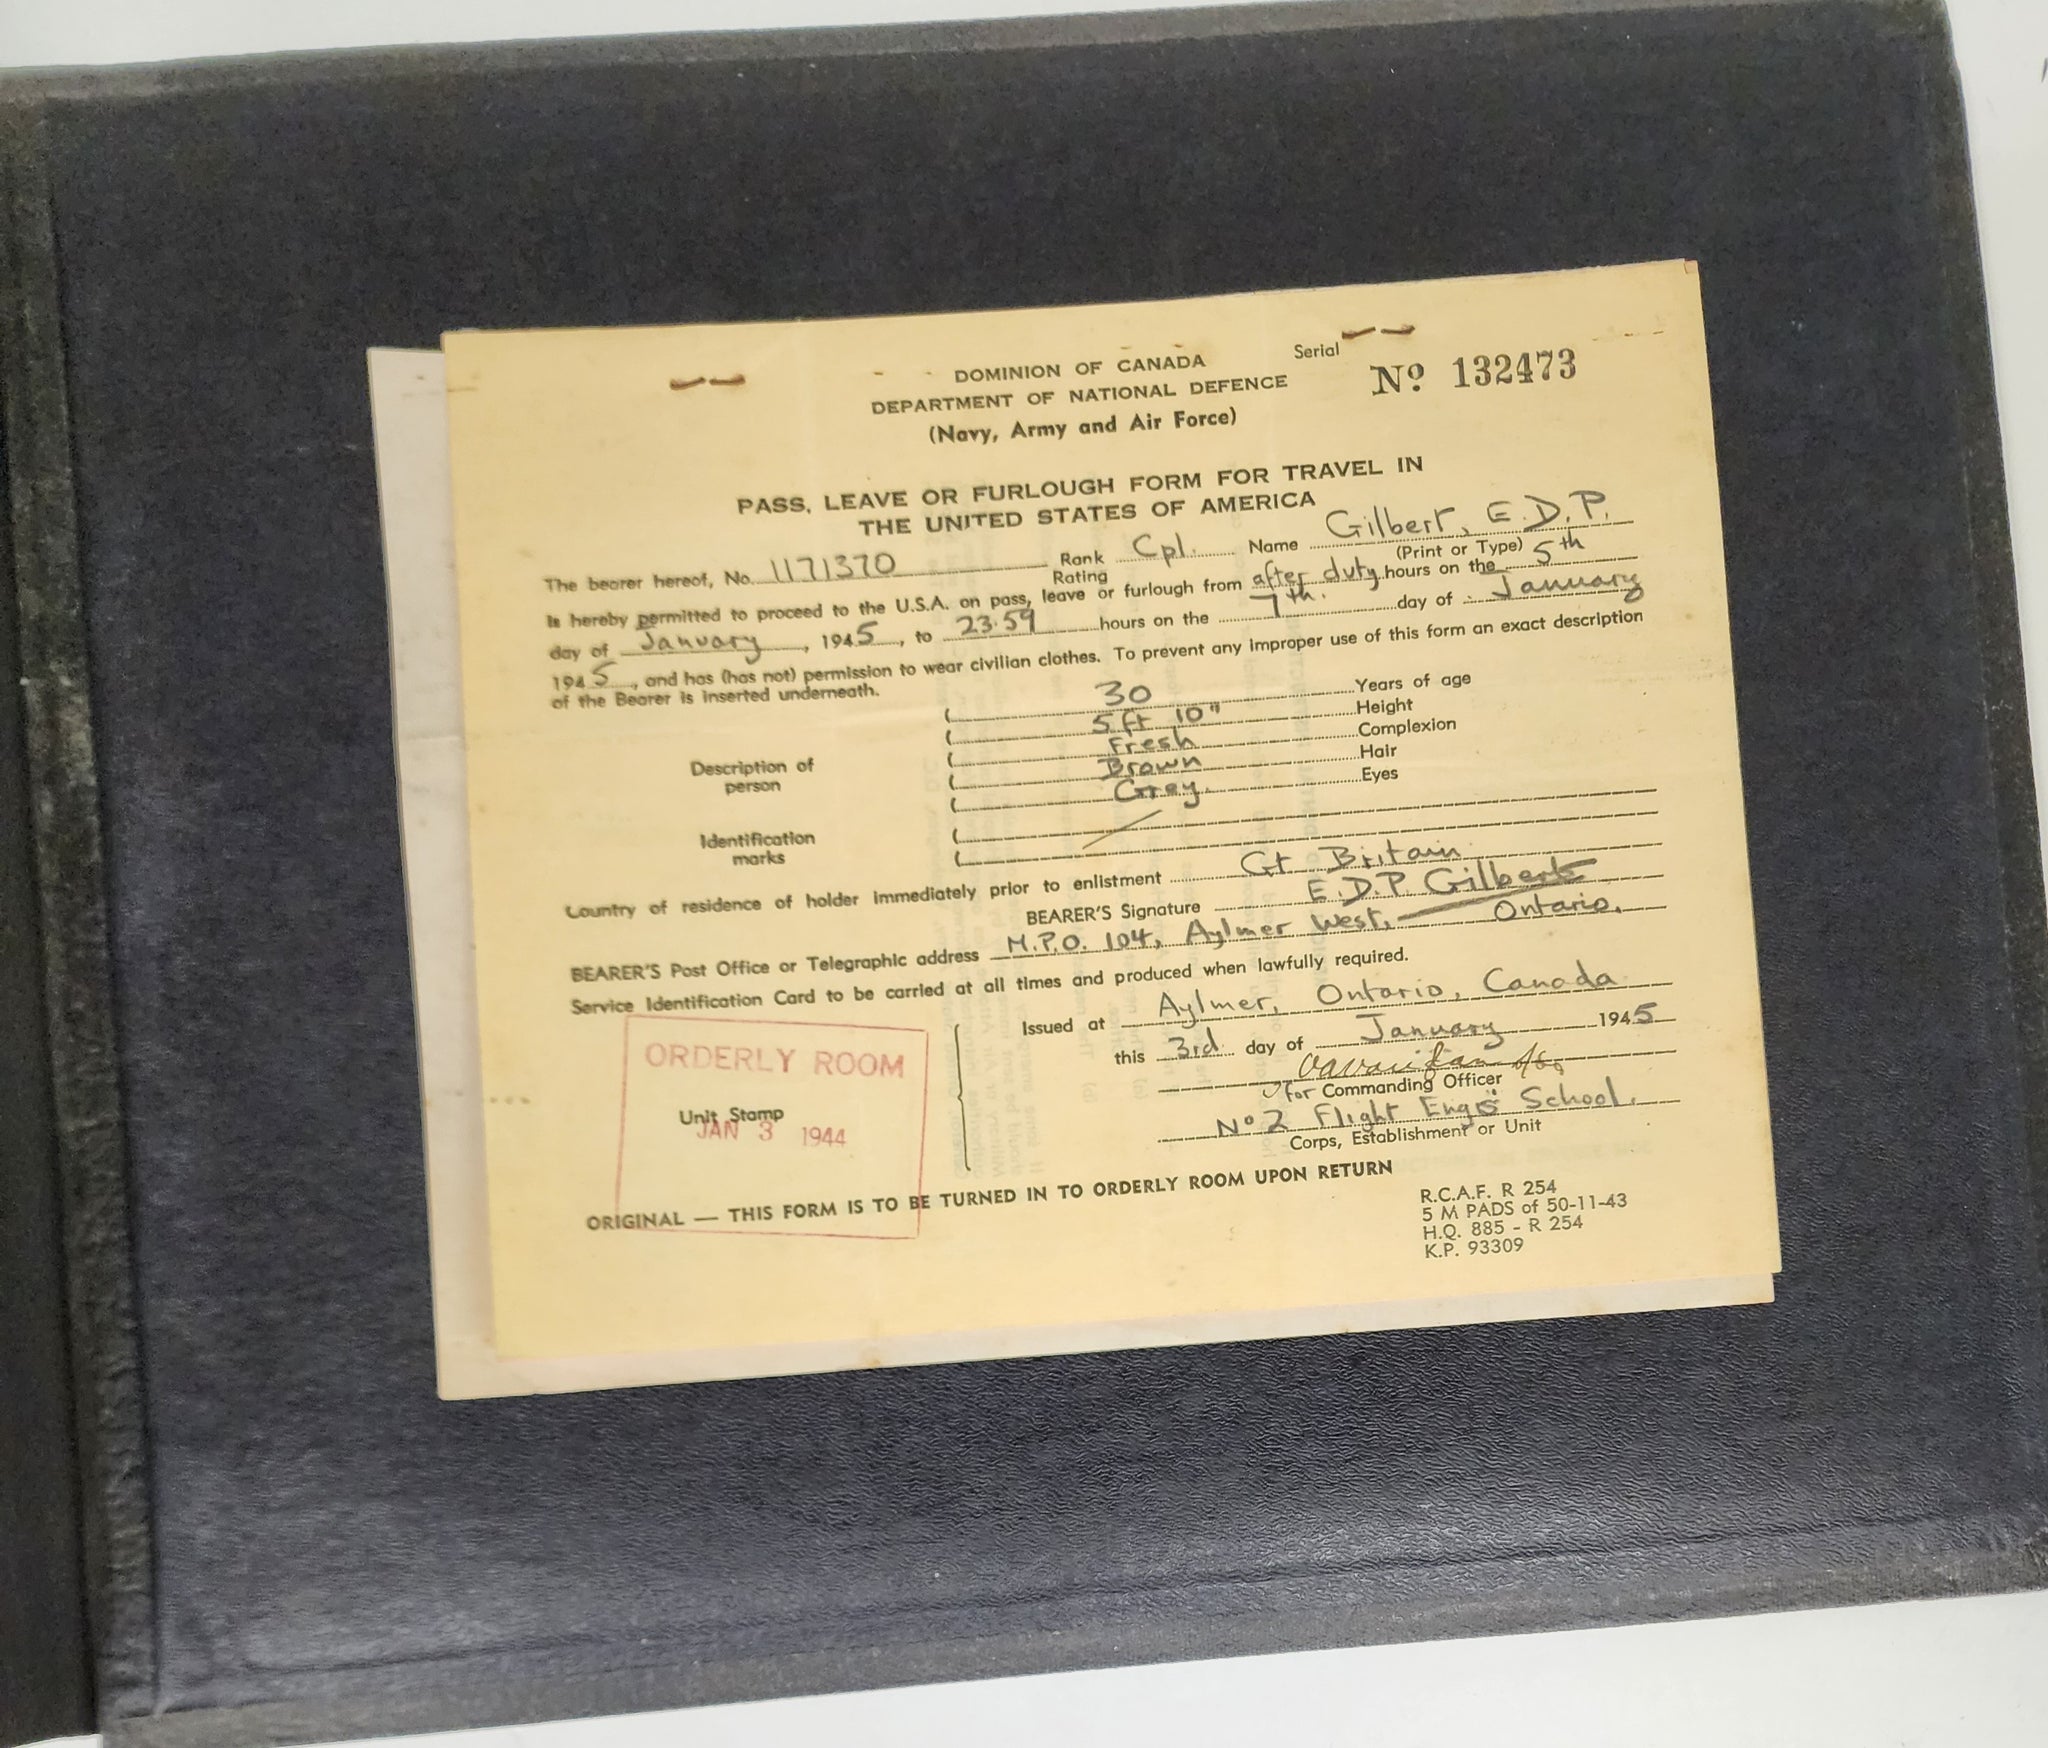 DOMINION OF CANADA
Serial
DEPARTMENT OF NATIONAL DEFENCE
Nº 132473
(Navy, Army and Air Force)
PASS, LEAVE OR FURLOUGH FORM FOR TRAVEL IN
THE UNITED STATES OF AMERICA
The bearer hereof, No. 1171370 Rank Rating Cpl. Name Gilbert, E.D.P.
(Print or Type)
Is hereby permitted to proceed to the U.S.A. on pass, leave or furlough from after duty hours on the 5th
day of January, 1945, to 23.59 hours on the 7th. day of January
1945, and has (has not) permission to wear civilian clothes. To prevent any improper use of this form an exact description
of the Bearer is inserted underneath.
30 Years of age
5 ft 10" Height
Fresh Complexion
Brown Hair
Grey. Eyes
Description of
person
Identification
marks
Country of residence of holder immediately prior to enlistment Gt Britain
BEARER'S Signature E.D.P. Gilbert
BEARER'S Post Office or Telegraphic address M.P.O. 104, Aylmer West, Ontario.
Service Identification Card to be carried at all times and produced when lawfully required.
Issued at Aylmer, Ontario, Canada
this 3rd day of January 1945
for Commanding Officer
No 2 Flight Engrs School.
Corps, Establishment or Unit
ORDERLY ROOM
Unit Stamp
JAN 3 1944
ORIGINAL — THIS FORM IS TO BE TURNED IN TO ORDERLY ROOM UPON RETURN
R.C.A.F. R 254
5 M PADS of 50-11-43
H.Q. 885 - R 254
K.P. 93309